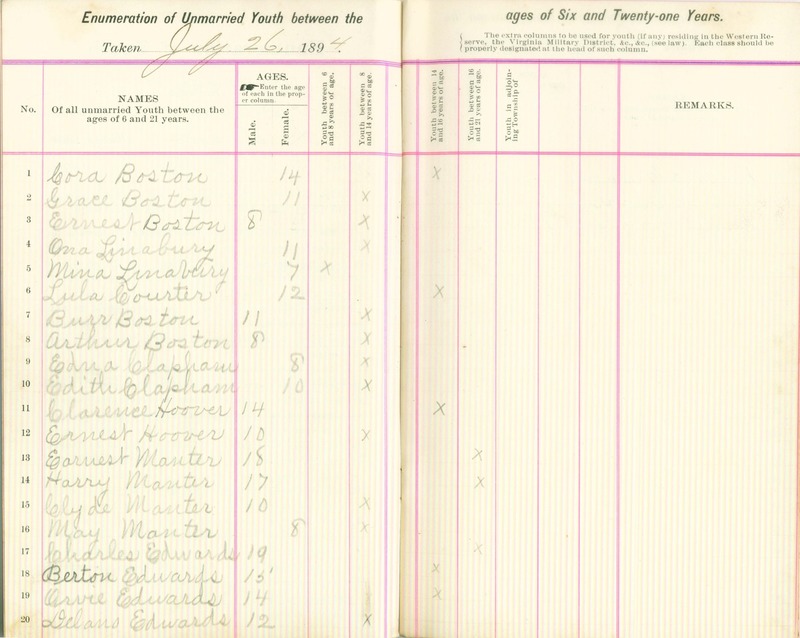 Enumeration of Unmarried Youth between the ages of Six and Twenty-one Years.
Taken July 26, 1894.
The extra columns to be used for youth (if any; residing in the Western Re-
serve, the Virginia Military District, &c., &c., (see law). Each class should be
properly designated at the head of such column.
No.
NAMES
Of all unmarried Youth between the
ages of 6 and 21 years.
AGES.
Enter the age
of each in the prop-
er column.
Male.
Female.
Youth between 6
and 8 years of age.
Youth between 8
and 14 years of age.
Youth between 14
and 16 years of age.
Youth between 16
and 21 years of age.
Youth in adjoin-
ing Township of
REMARKS.
1 Cora Boston 14 X
2 Grace Boston 11 X
3 Ernest Boston 8 X
4 Ona Linabury 11 X
5 Mina Linabury 7 X
6 Lula Courter 12 X
7 Burr Boston 11 X
8 Arthur Boston 8 X
9 Edna Clapham 8 X
10 Edith Clapham 10 X
11 Clarence Hoover 14 X
12 Ernest Hoover 10 X
13 Earnest Manter 18 X
14 Harry Manter 17 X
15 Clyde Manter 10 X
16 May Manter 8 X
17 Charles Edwards 19 X
18 Berton Edwards 15 X
19 Orvie Edwards 14 X
20 Delano Edwards 12 X